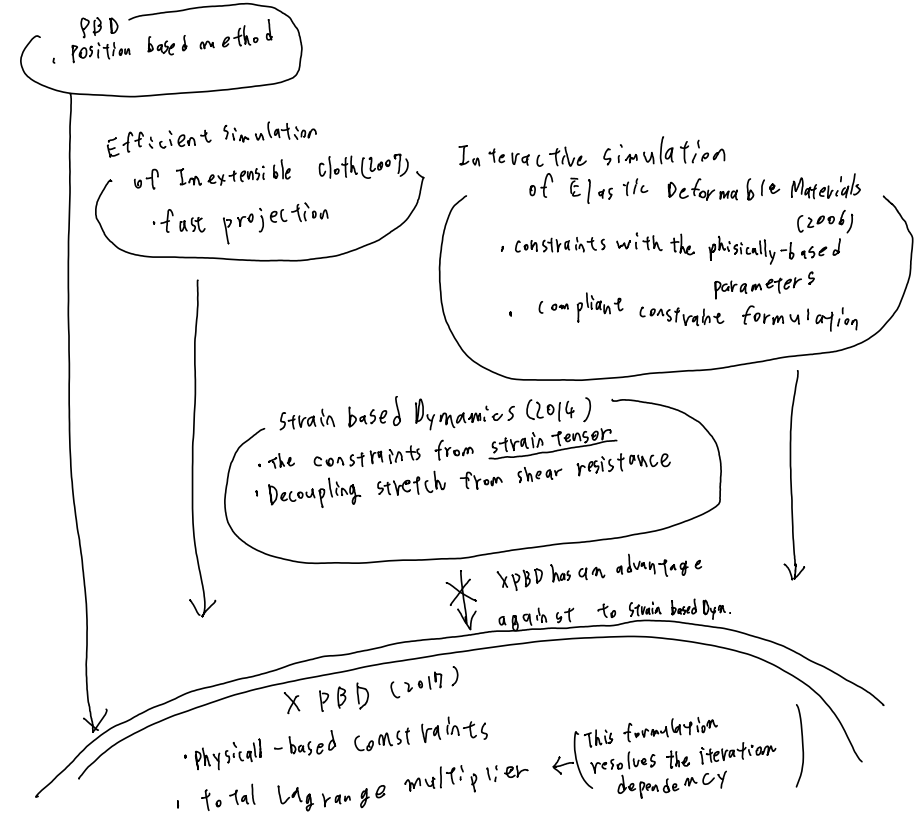 PBD
・Position based method
Efficient Simulation
of Inextensible Cloth (2007)
・fast projection
Interactive simulation
of Elastic Deformable Materials
(2006)
・constraints with the phisically-based
parameters
・compliant constraint formulation
Strain based Dynamics (2014)
・The constraints from strain tensor
・Decoupling stretch from shear resistance
XPBD has an advantage
against to Strain based Dyn.
XPBD (2017)
・Physicall-based Constraints
・total Lagrange multiplier ← (This formulation
resolves the iteration
dependency)